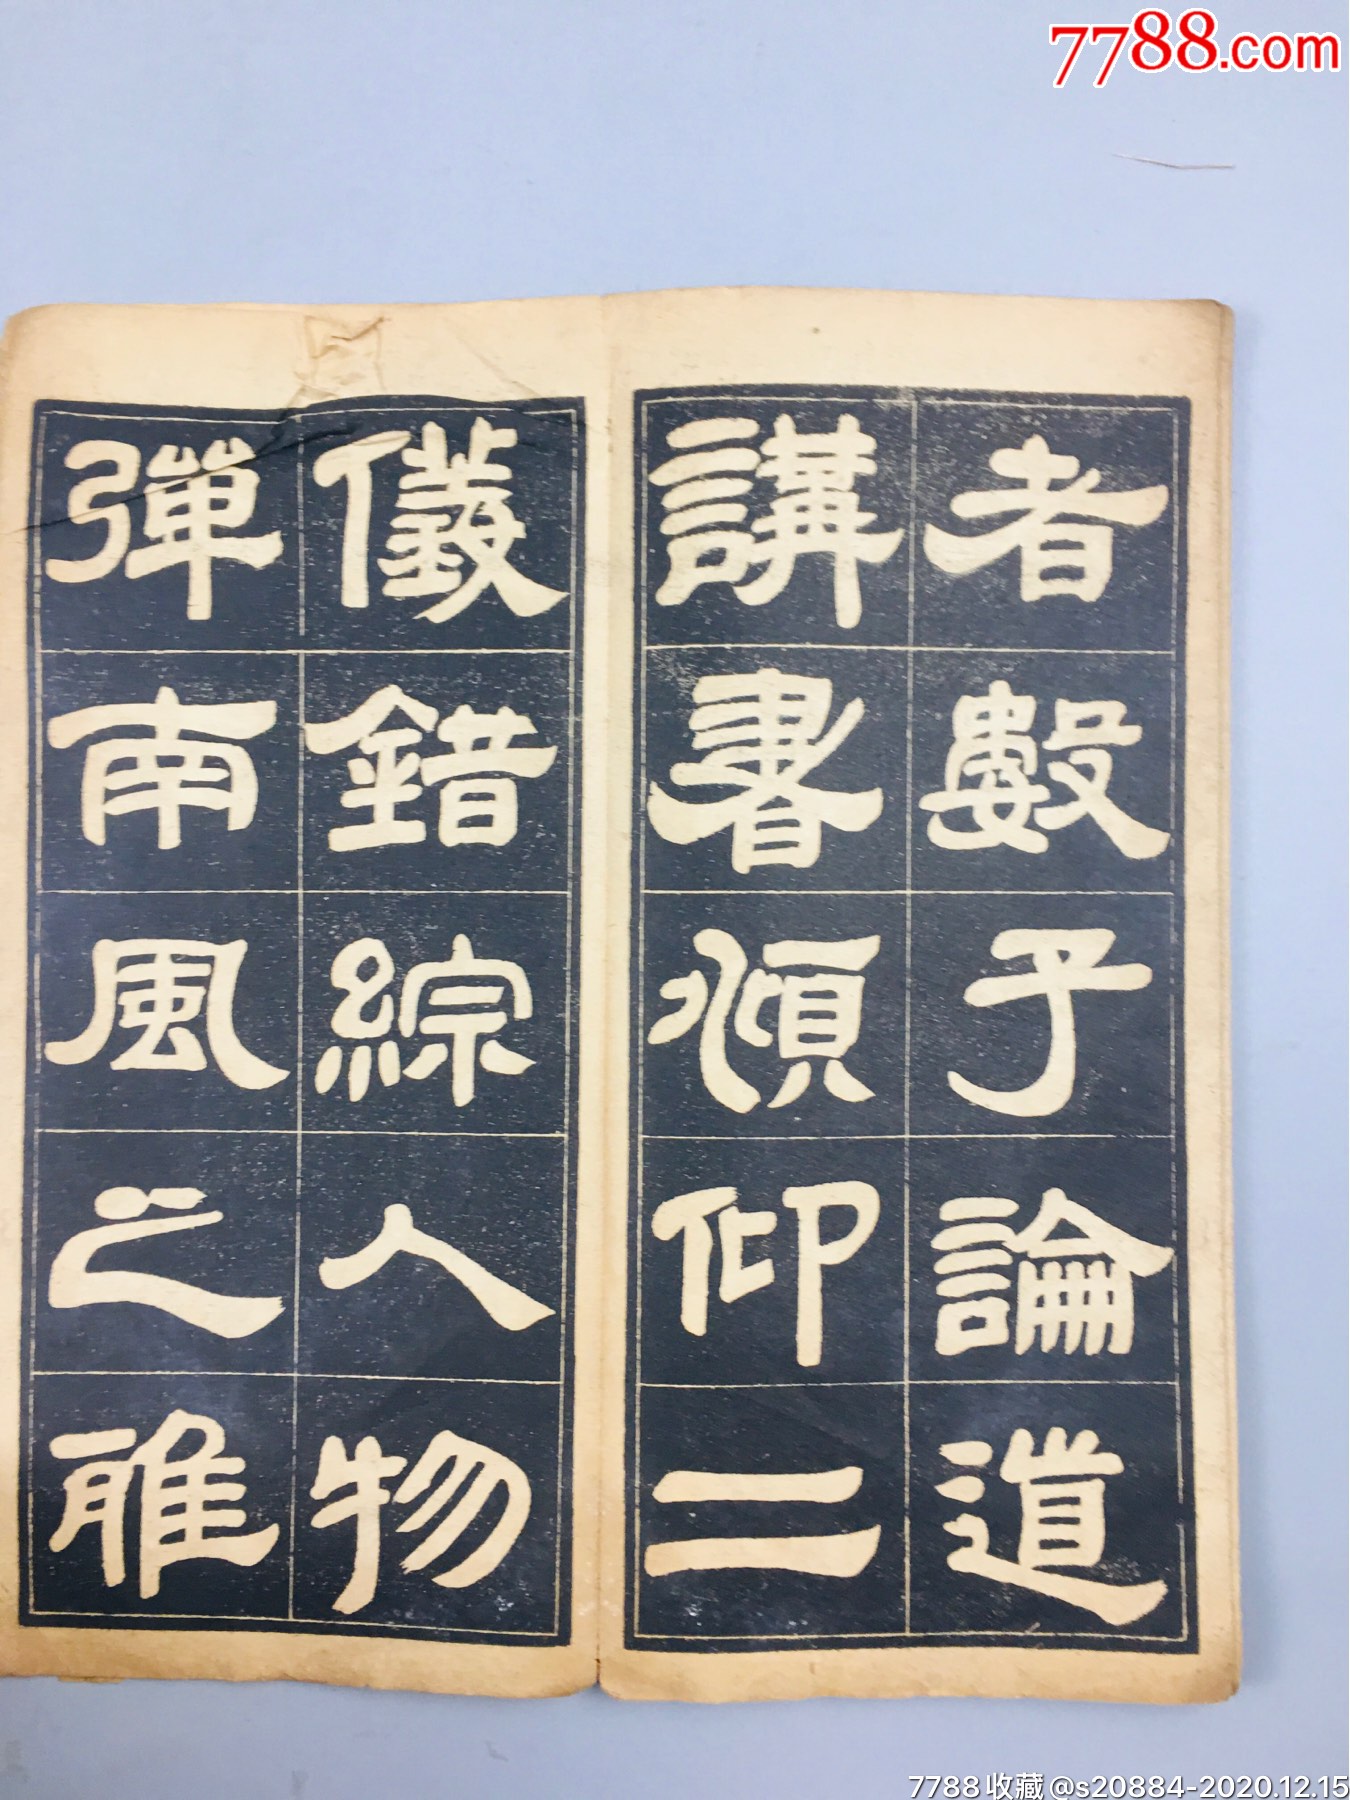 7788.com
者數子論道
講書傾仰二
儀錯綜人物
彈南風之雅
7788收藏@s20884-2020.12.15